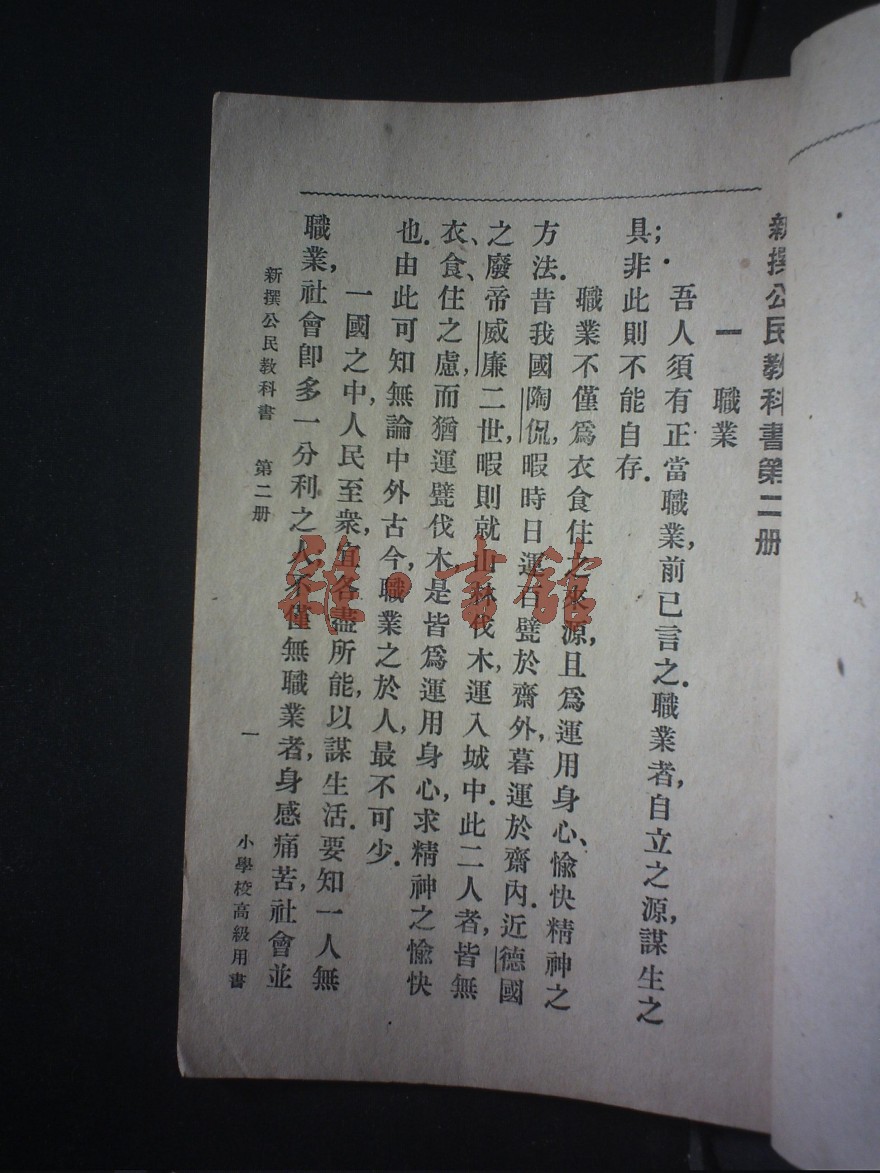 新撰公民教科書第二册
一　職業
吾人須有正當職業，前已言之．職業者，自立之源，謀生之
具；非此則不能自存．
職業不僅爲衣食住之來源，且爲運用身心、愉快精神之
方法．昔我國陶侃，暇時日運百甓於齋外，暮運於齋內．近德國
之廢帝威廉二世，暇則就山林伐木，運入城中．此二人者，皆無
衣、食、住之慮，而猶運甓伐木，是皆爲運用身心，求精神之愉快
也．由此可知無論中外古今，職業之於人，最不可少．
一國之中，人民至衆，宜各盡所能，以謀生活．要知一人無
職業，社會卽多一分利之人，不僅無職業者，身感痛苦，社會並
新撰公民教科書　第二册
一
小學校高級用書
雜·書館